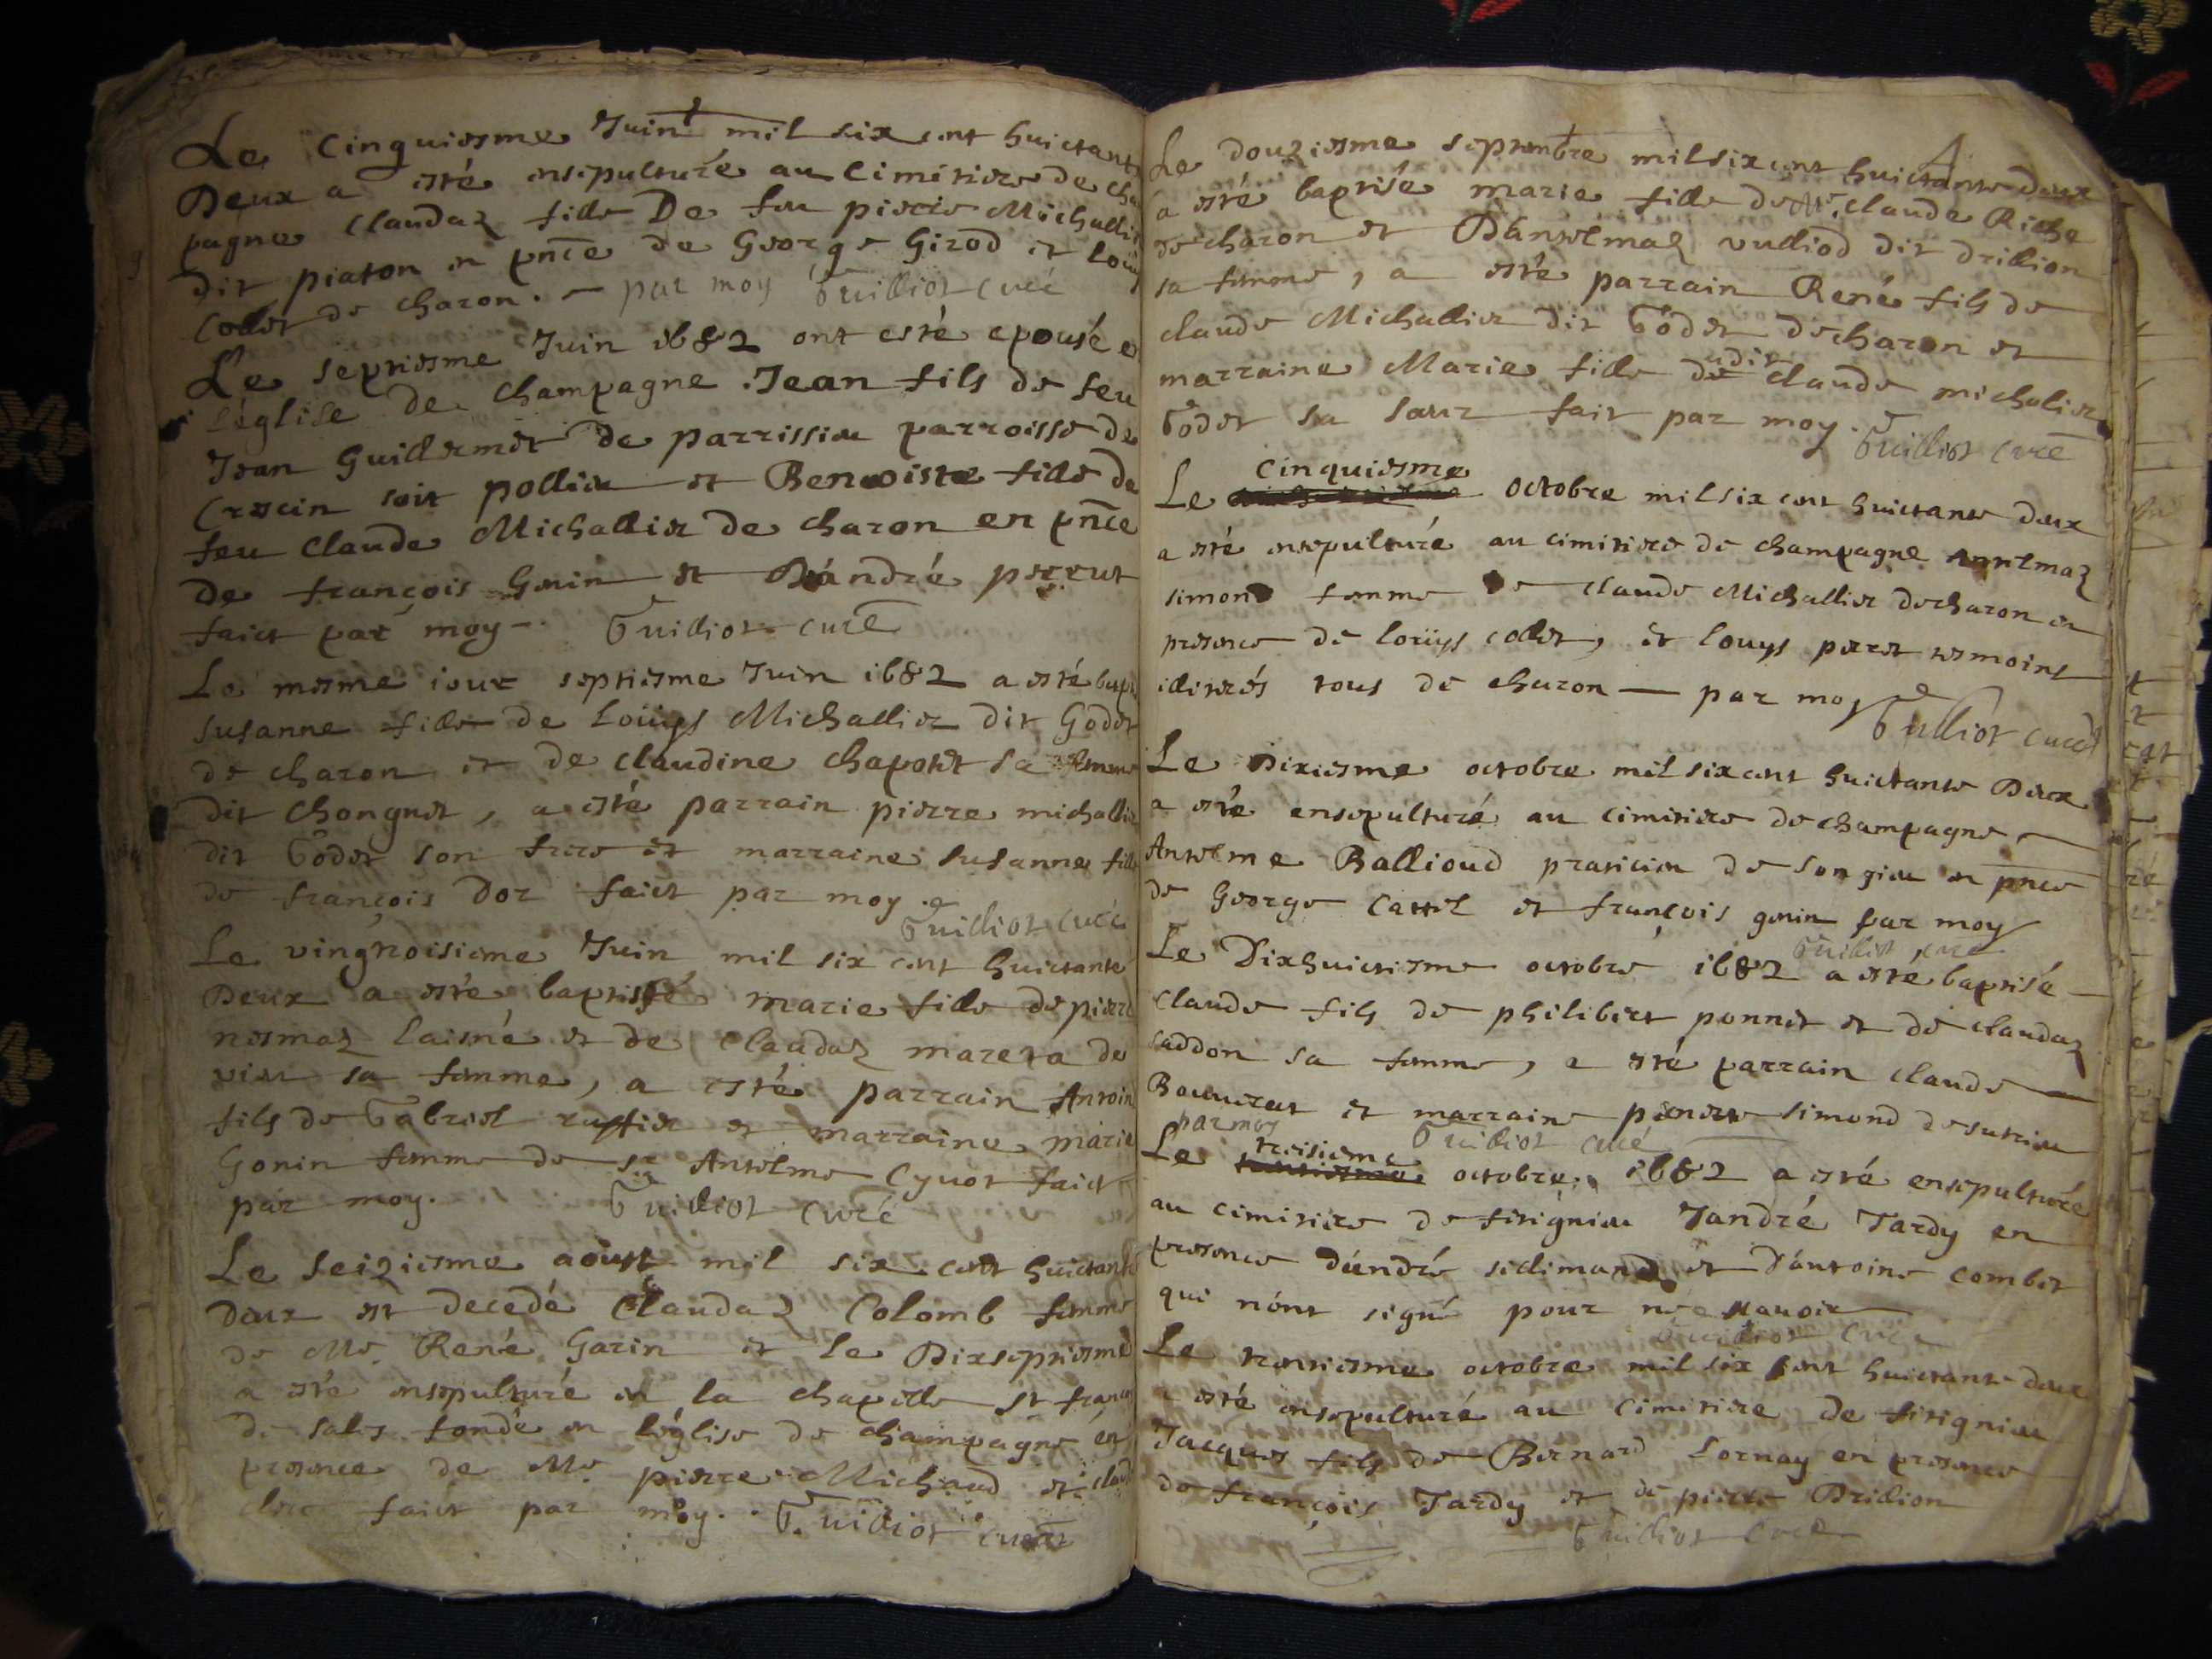 Le Cinquiesme Juin mil six cent huictante
Deux a esté ensepulturé au Cimitiere de Cha
pagne Claudaz fille De feu pierre Michallier
dit piaton en pnce de George Girod et Loüys
Collet de charon. par moy Guilliot curé
Le septiesme Juin 1682 ont esté epousé e
l'église de champagne Jean fils de feu
Jean Guillermet de parrissieu parroisse de
Crescin soit pollieu et Benoiste fille de
feu Claude Michallier de charon en pnce
De françois Gonin et D'andré perrut
faict par moy Guilliot curé
Le mesme iour septiesme Juin 1682 a esté bapt
Susanne fille de Loüys Michallier dit Godet
de charon et de claudine chapotet sa femme
dit chonguet, a esté parrain pierre michallier
dit Godet son frere et marraine susanne fille
de françois Dor faict par moy
Guilliot curé
Le vingtroisieme Juin mil six cent huictante
Deux a esté baptisé marie fille de pierre
nesmaz laisné et de Claudaz mareta de
vieu sa femme, a esté parrain Antoin
fils de Gabriel ruffier et marraine marie
Gonin femme de sr Antelme Cyuot faict
par moy. Guilliot curé
Le seiziesme aoust mil six cent huictante
Deux est decedé Claudaz Colomb femme
de Me René Garin et Le Dixseptiesme
a esté ensepulturé en la chapelle St françois
de sales fondé en l'église de champagne en
presence de Me pierre Michaud et claude
clerc faict par moy. Guilliot curé
4
Le douziesme septembre mil six cent huictante deux
a esté baptisé marie fille de Me claude Riche
de charon et D'antelmaz vulliod dit drillion
sa femme, a esté parrain René fils de
claude Michallier dit Godet de charon et
marraine Marie fille dudit claude michalier
Godet sa sœur fait par moy.
Guilliot curé
Le cinquiesme octobre mil six cent huictante deux
a esté ensepulturé au cimitiere de champagne Antelmaz
simond femme de claude Michallier de charon en
presence de loüys collet, et louys perret tesmoins
illiterés tous de charon par moy
Guilliot curé
Le Dixiesme octobre mil six cent huictante Deux
a esté ensepulturé au cimitiere de champagne
Antelme Ballioud praticien de songieu en pnce
de George Cattil et françois gonin par moy
Guilliot curé
Le Dixhuictiesme octobre 1682 a esté baptisé
claude fils de philibert ponnet et de claudaz
caddon sa femme, a esté parrain claude
Bouuerat et marraine pernette simond de sutrieu
par moy Guilliot curé
Le troisieme octobre 1682 a esté ensepulturé
au cimitiere de fitignieu Jandré Tardy en
presence d'andré sidimand et d'antoine combet
qui n'ont signé pour ne sauoir
Guilliot curé
Le trentiesme octobre mil six cent huictante deux
a esté ensepulturé au cimitiere de fitignieu
Jacques fils de Bernard Lornay en presence
de françois Tardy et de pierre Drillion
Guilliot curé